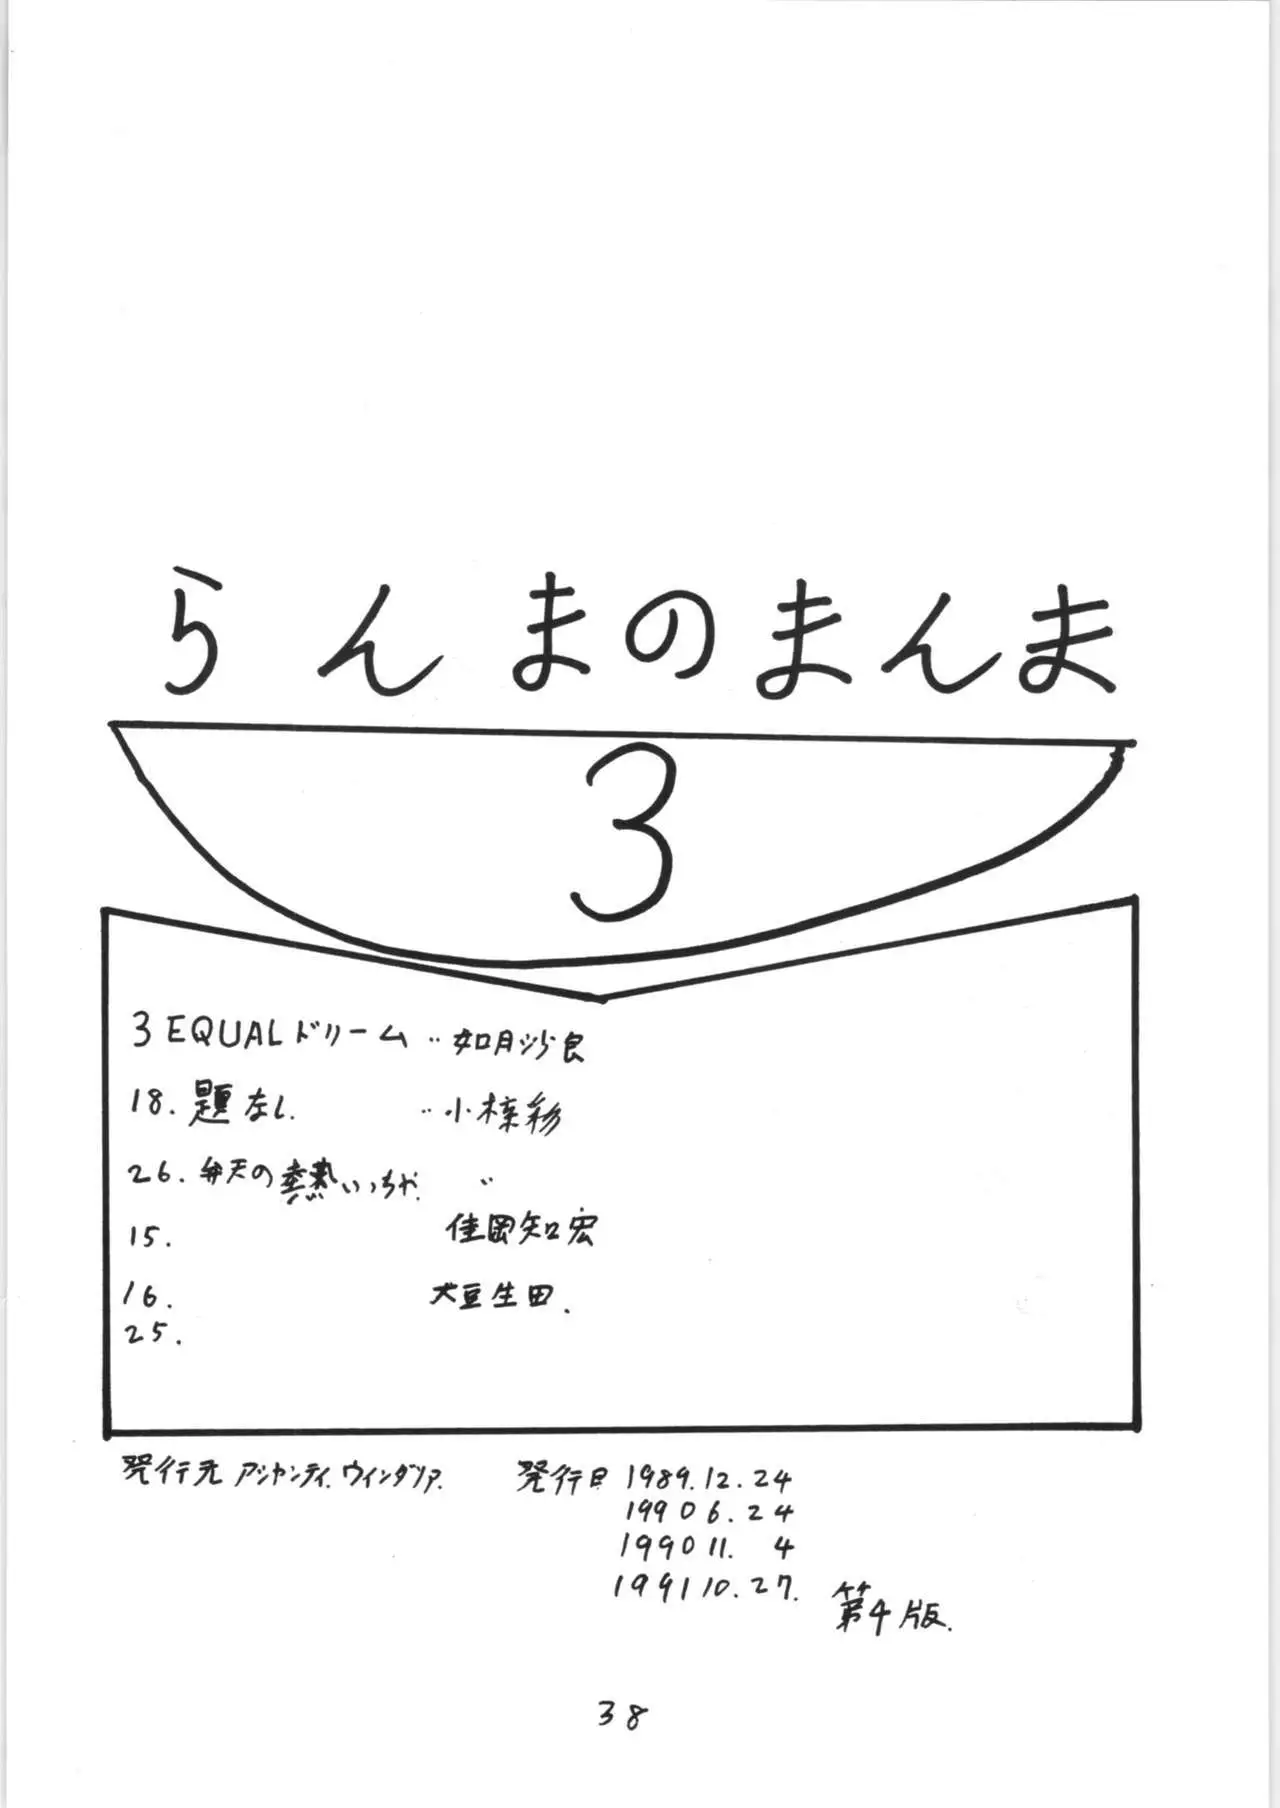 らんまのまんま
3
3 EQUALドリーム 〃 如月沙良
18. 題なし 〃 小梓彩
26. 弁天の熱いっちゃ 〃
15. 佳岡知宏
16. 犬豆生田.
25.
発行元 アシャンティ.ウインダリア. 発行日 1989.12.24
1990 6.24
1990 11. 4
1991 10.27.
第4版.
38